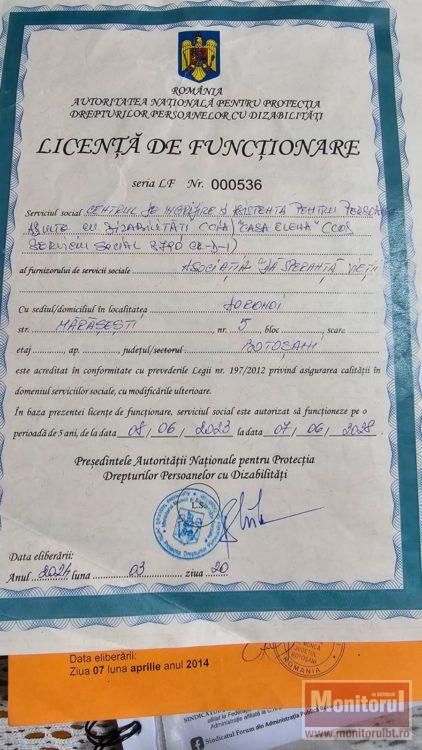 ROMÂNIA
AUTORITATEA NAȚIONALĂ PENTRU PROTECȚIA
DREPTURILOR PERSOANELOR CU DIZABILITĂȚI
LICENȚĂ DE FUNCȚIONARE
seria LF Nr. 000536
Serviciul social CENTRUL DE INGRIJIRE ȘI ASISTENTA PENTRU PERSOANE
ADULTE CU DIZABILITATI "CASA ELENA" (COD
SERVICIU SOCIAL 8790 CR-D-I)
al furnizorului de servicii sociale ASOCIAȚIA "DĂ SPERANȚĂ VIEȚII"
Cu sediul/domiciliul în localitatea DOROHOI
str. MĂRĂȘEȘTI, nr. 5, bloc, scara
etaj, ap., județul/sectorul BOTOȘANI
este acreditat în conformitate cu prevederile Legii nr. 197/2012 privind asigurarea calității în
domeniul serviciilor sociale, cu modificările ulterioare.
În baza prezentei licențe de funcționare, serviciul social este autorizat să funcționeze pe o
perioadă de 5 ani, de la data 08/06/2023 la data 07/06/2028.
Președintele Autorității Naționale pentru Protecția
Drepturilor Persoanelor cu Dizabilități
L.S.
Data eliberării:
Anul 2024 luna 03 ziua 20
Data eliberării:
Ziua 07 luna aprilie anul 2014
JUDEȚUL
BOTOȘANI
ROMANIA
SINDICATUL
afiliat la Federația
Administrație afiliată la
Sindicatul Forum din Administrația Publică
Monitorul
www.monitorulbt.ro